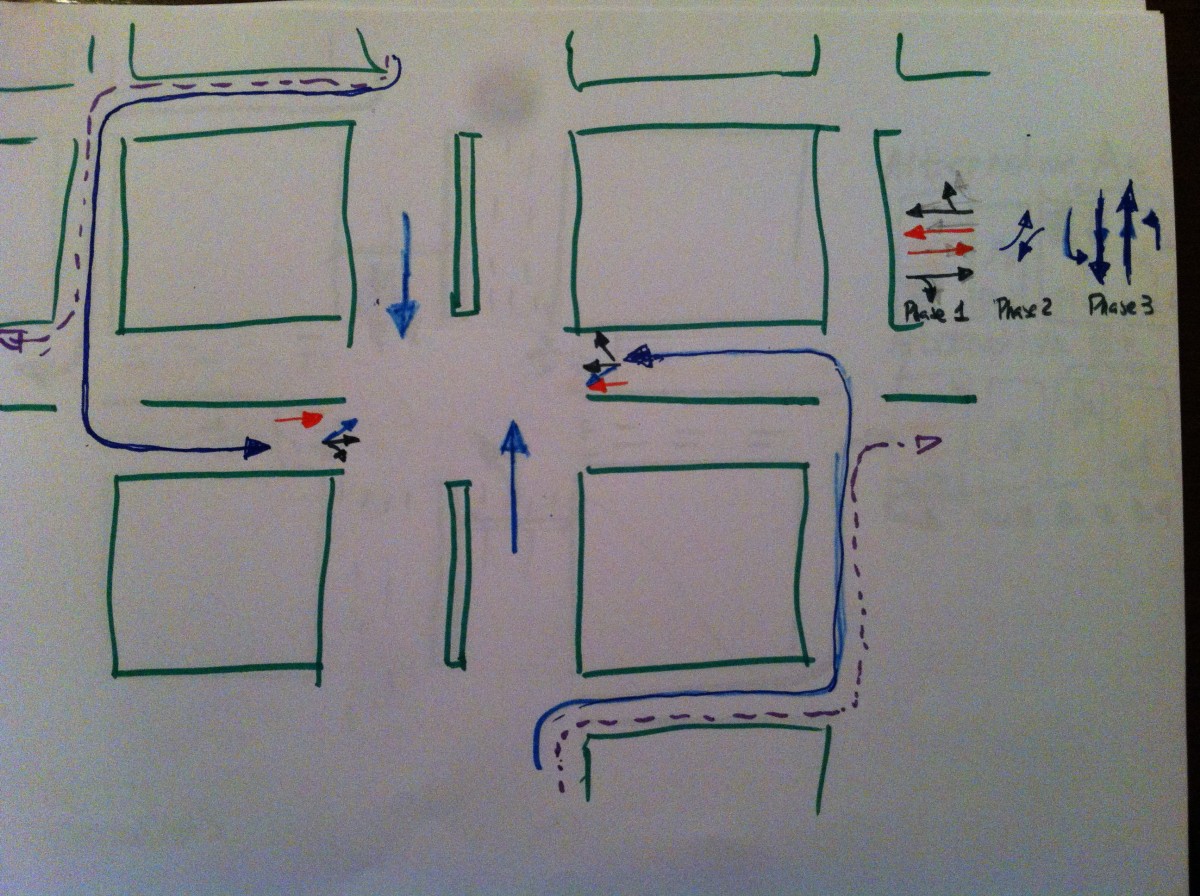 Phase 1 Phase 2 Phase 3